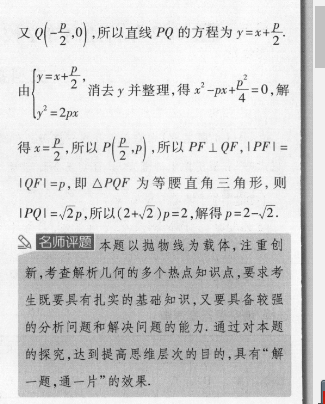 又 Q(-p/2,0),所以直线 PQ 的方程为 y=x+p/2.
由{y=x+p/2, y²=2px 消去 y 并整理,得 x²-px+p²/4=0,解
得 x=p/2,所以 P(p/2,p),所以 PF⊥QF,|PF|=
|QF|=p,即 △PQF 为等腰直角三角形,则
|PQ|=√2p,所以(2+√2)p=2,解得 p=2-√2.
名师评题 本题以抛物线为载体,注重创
新,考查解析几何的多个热点知识点,要求考
生既要具有扎实的基础知识,又要具备较强
的分析问题和解决问题的能力.通过对本题
的探究,达到提高思维层次的目的,具有“解
一题,通一片”的效果.